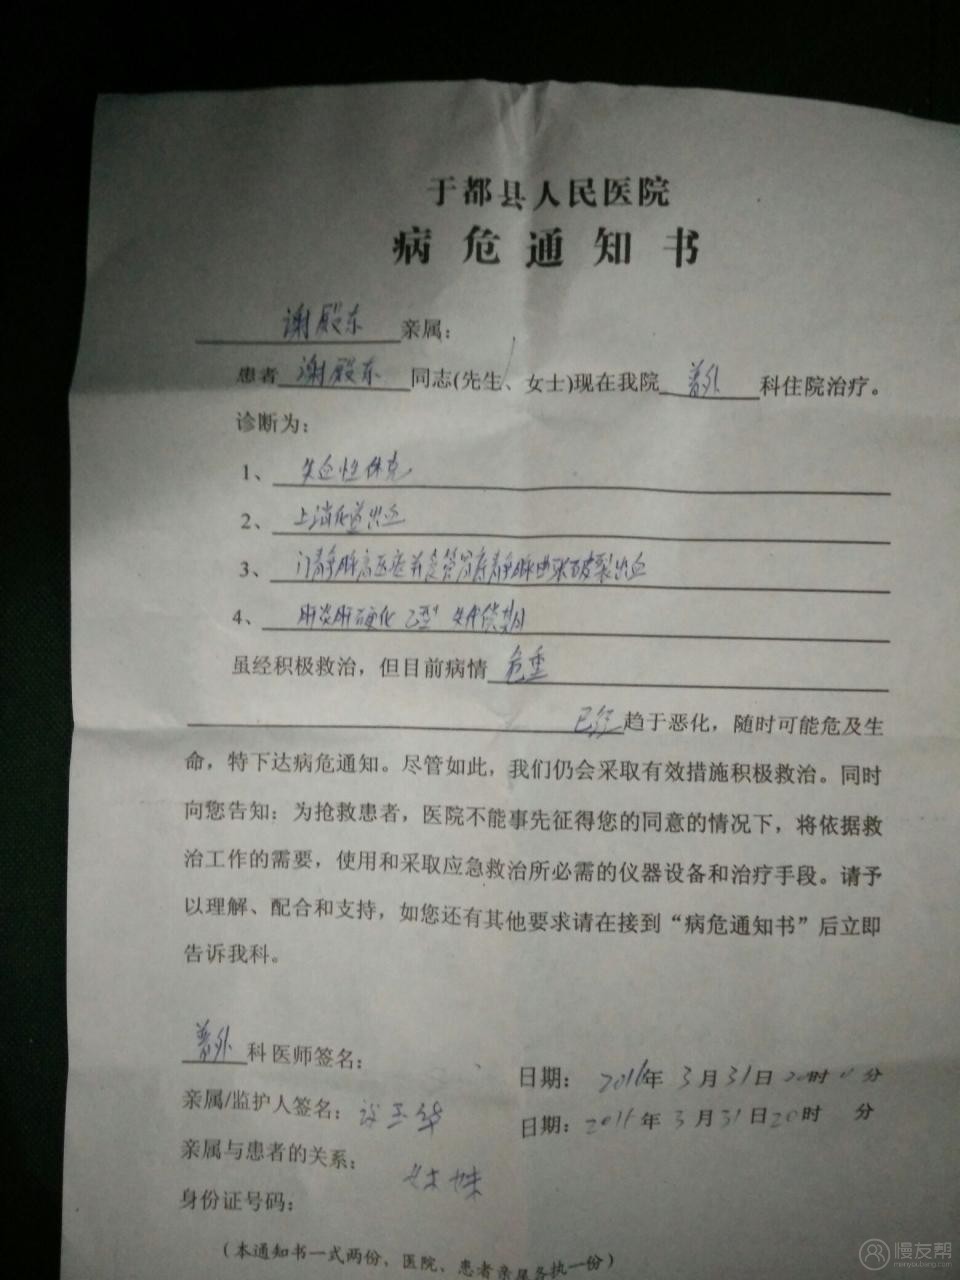 于都县人民医院
病危通知书
谢殿东 亲属：
患者 谢殿东 同志(先生、女士)现在我院 普外 科住院治疗。
诊断为：
1、 失血性休克
2、 上消化道出血
3、 门静脉高压症并食管胃底静脉曲张破裂出血
4、 肝炎肝硬化 乙型 失代偿期
虽经积极救治，但目前病情 危重
已经 趋于恶化，随时可能危及生
命，特下达病危通知。尽管如此，我们仍会采取有效措施积极救治。同时
向您告知：为抢救患者，医院不能事先征得您的同意的情况下，将依据救
治工作的需要，使用和采取应急救治所必需的仪器设备和治疗手段。请予
以理解、配合和支持，如您还有其他要求请在接到“病危通知书”后立即
告诉我科。
普外 科医师签名：
日期： 2016年 3月 31日 20时 分
亲属/监护人签名：
日期： 2016年 3月 31日 20时 分
亲属与患者的关系：
身份证号码：
（本通知书一式两份，医院、患者亲属各执一份）
慢友帮
manyoubang.com